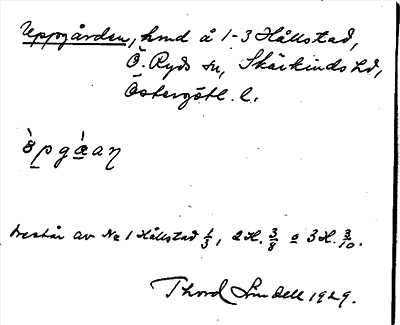 Uppgården, hmd å 1-3 Hållstad,
Ö. Ryds sn, Skärkinds hd,
Östergötl. l.
består av No 1 Hållstad 1/3, 2 H. 3/8 o 3 H. 3/10.
Thord Lindell 1929.